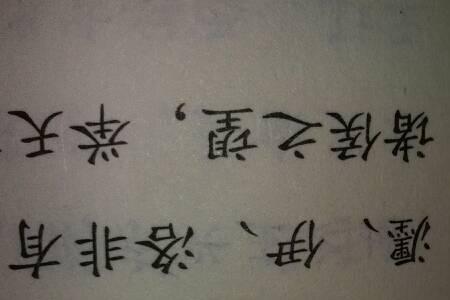 瀍、伊、洛非有
诸侯之望，举天